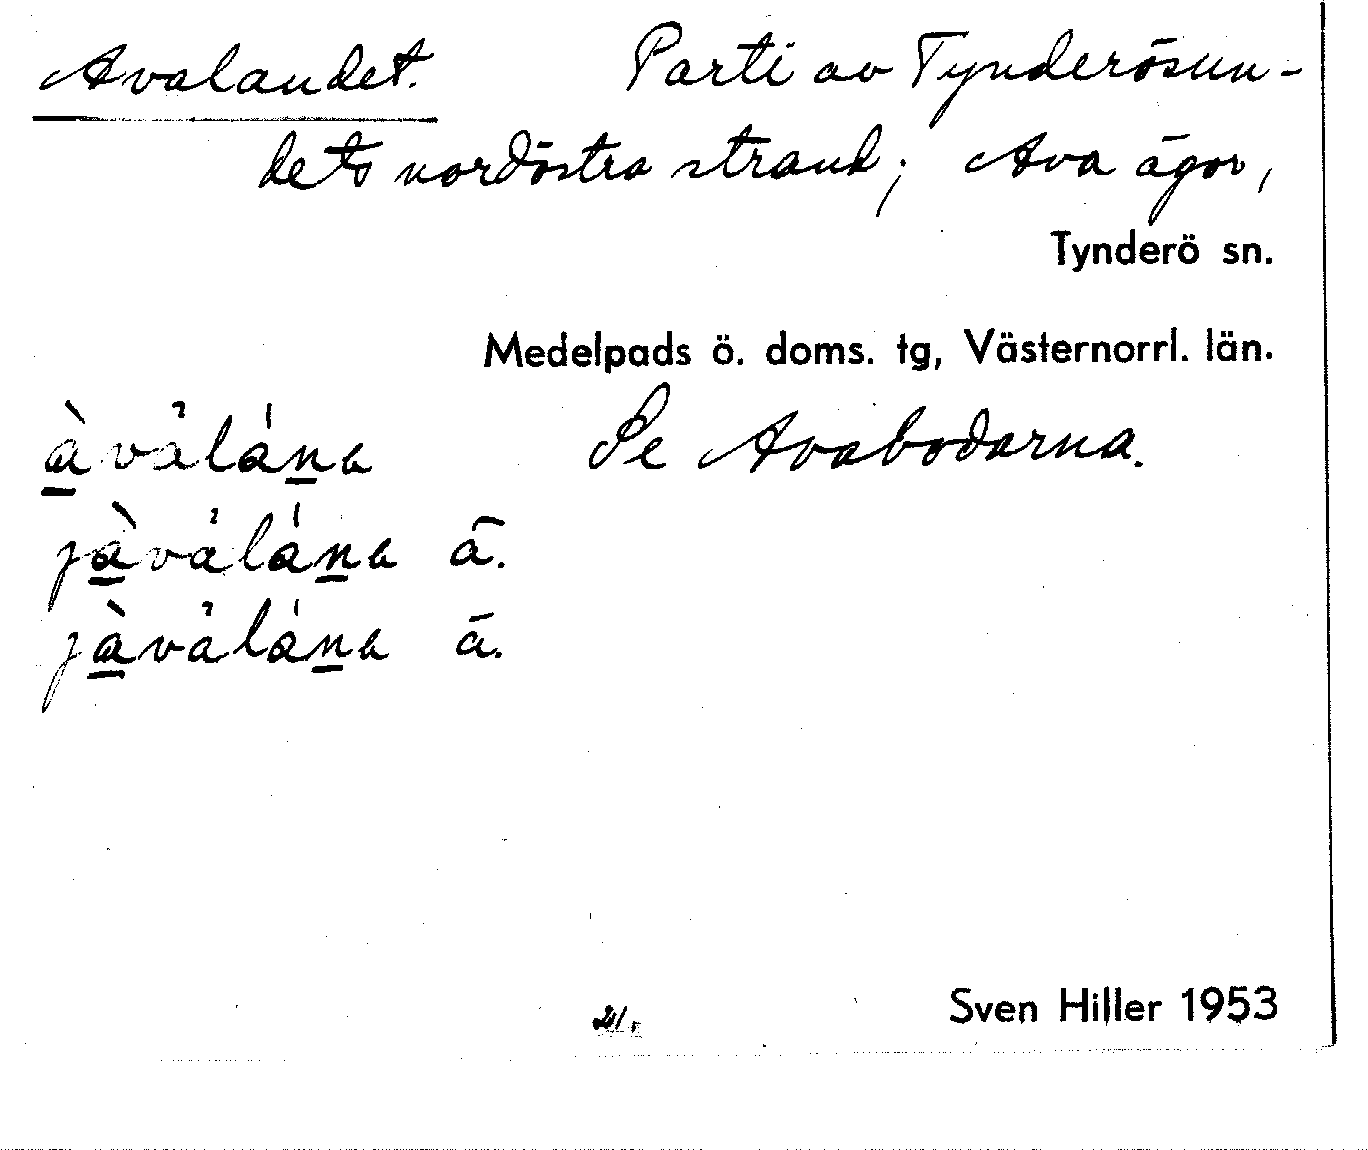 Avalandet. Parti av Tynderösun-
dets nordöstra strand; Ava ägor,
Tynderö sn.
Medelpads ö. doms. tg, Västernorrl. län.
àvålána Se Avabodarna.
jàvålána ā.
jàvålána ā.
Sven Hiller 1953